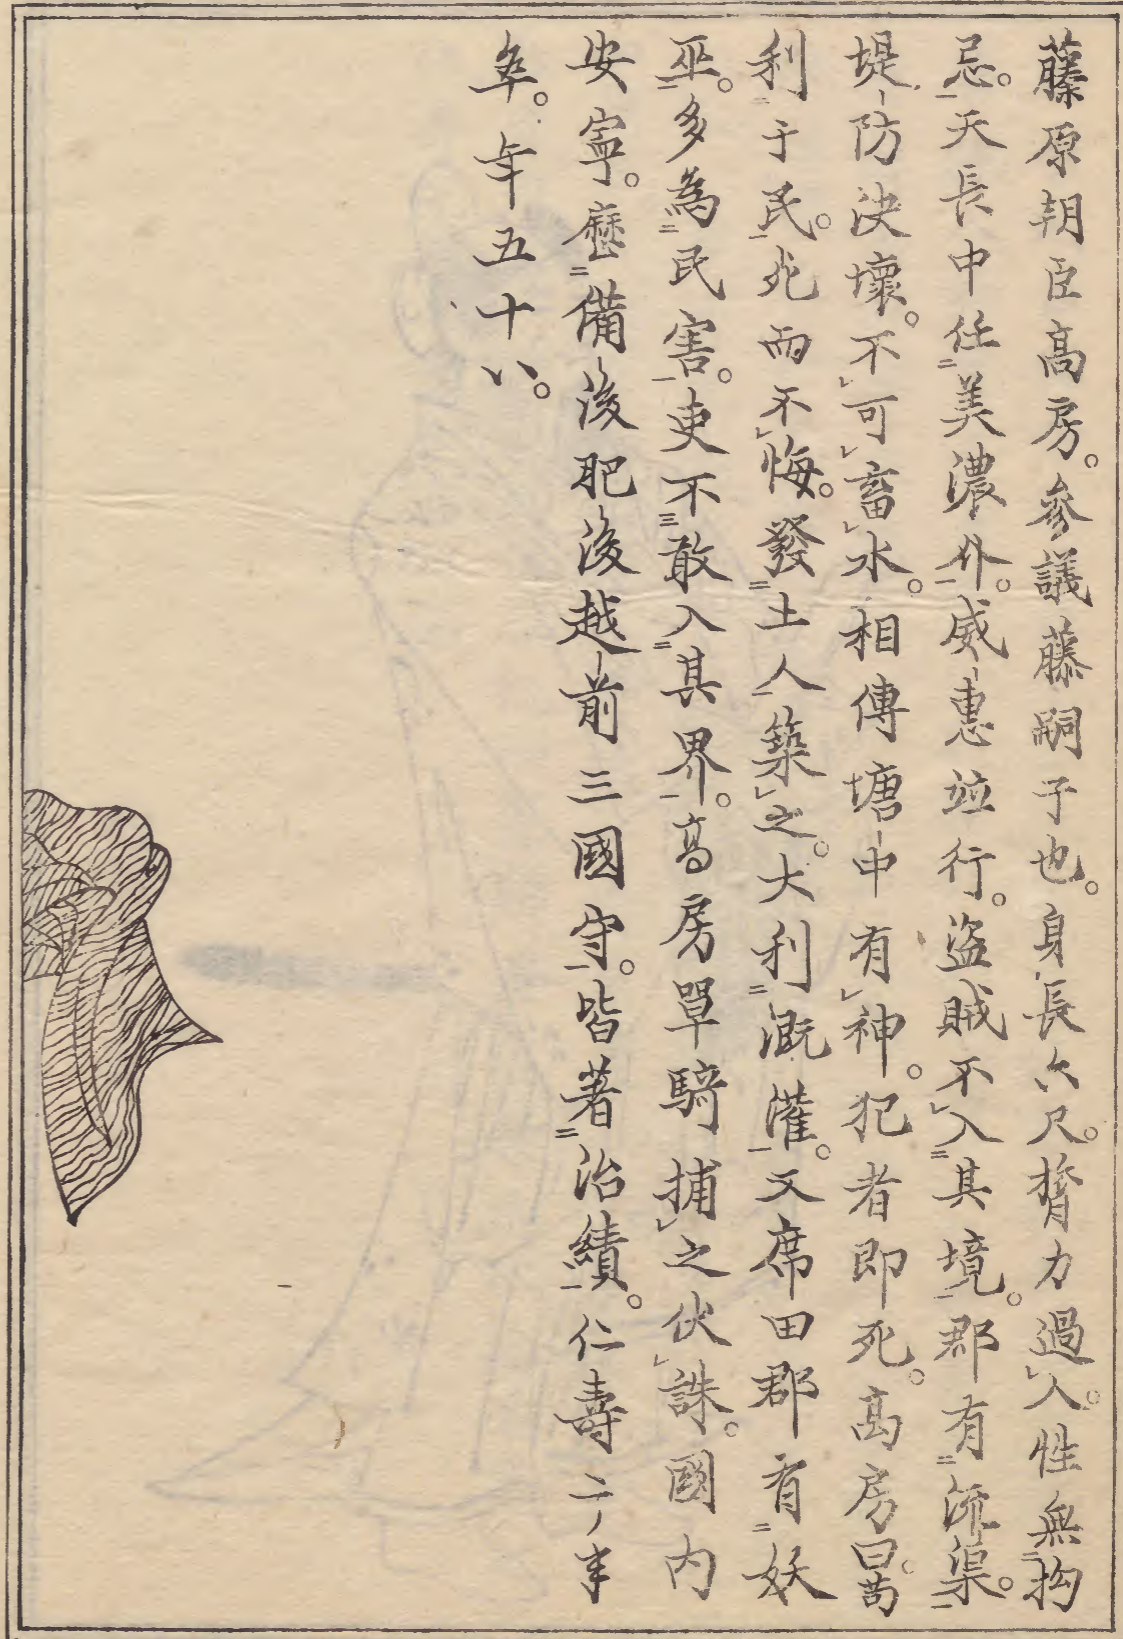 藤原朝臣高房。參議藤嗣子也。身長六尺。膂力過人。性無拘
忌。天長中任美濃介。威惠竝行。盜賊不入其境。郡有流渠。
堤防決壞。不可畜水。相傳塘中有神。犯者即死。高房曰。苟
利于民。死而不悔。發土人築之。大利溉灌。又席田郡有妖
巫。多為民害。吏不敢入其界。高房單騎捕之伏誅。國內
安寧。歷備後肥後越前三國守。皆著治績。仁壽二年
卒。年五十八。